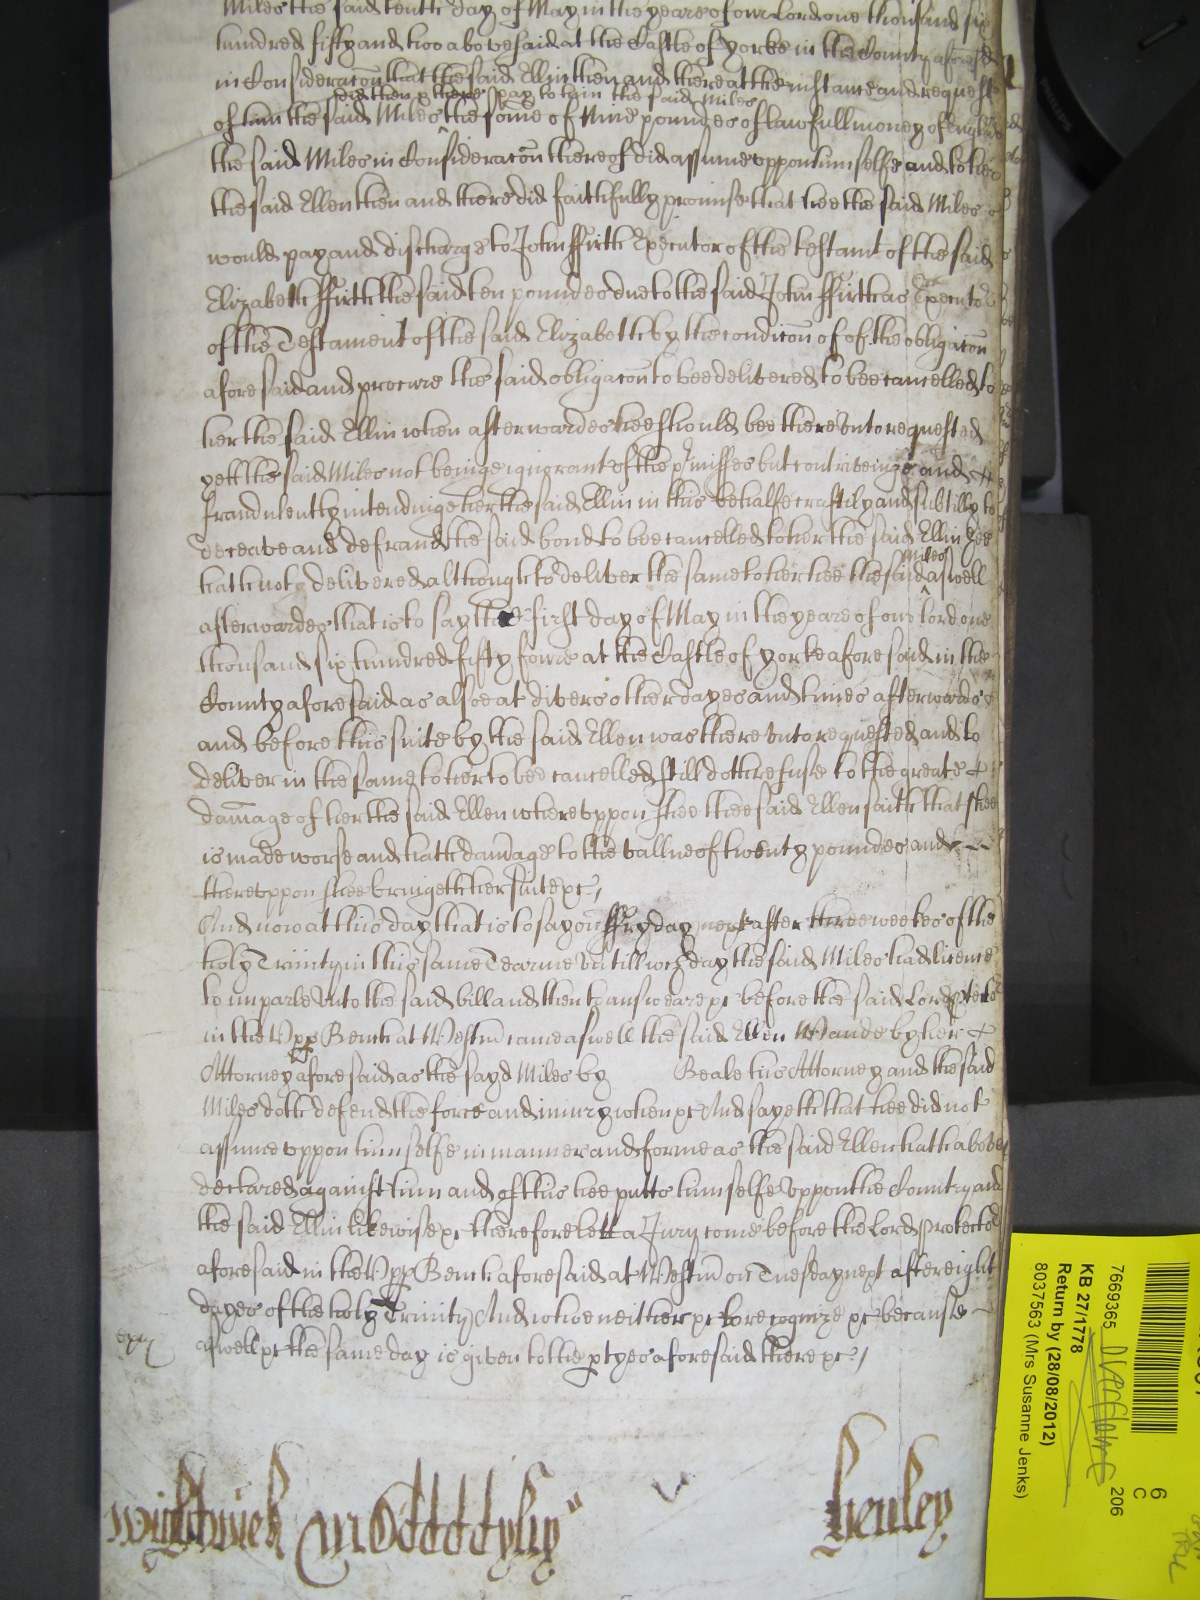 Miles the said tenth day of May in the yeare of our Lord one thousand six
hundred fifty and two abovesaid at the Castle of Yorke in the County aforesd
in Consideracon that the said Ellin then and there at the instance and request
did then & there pay to him the said Miles
of him the said Miles the some of Nine poundes of lawfull money of England
the said Miles in Consideracon thereof did assume uppon himselfe and to her
the said Ellen then and there did faithfully promise that hee the said Miles
would pay and discharge to John ffirth Executor of the testamt of the said
Elizabeth ffirth the said ten poundes due to the said John ffirth as Executor
of the Testament of the said Elizabeth by the condicon of of the obligacon
aforesaid and procure the said obligacon to bee delivered to bee cancelled to
her the said Ellin when afterwardes hee should bee thereunto requested
yett the said Miles not beinge ignorant of the pmisses but contriveinge and
fraudulently intendinge her the said Ellin in this behalfe craftily and subtilly to
deceave and defraud the said bond to bee cancelled to her the said Ellin hee
Miles
hath not delivered although to deliver the same to her hee the said aswell
afterwardes that is to say the first day of May in the yeare of our Lord one
thousand six hundred fifty fowre at the Castle of Yorke aforesaid in the
County aforesaid as alsoe at divers other dayes and times afterwardes
and before this suite by the said Ellen was thereunto requested and to
deliver in the same to her to bee cancelled still doth refuse to the greate
damage of her the said Ellen whereuppon shee the said Ellen saith that shee
is made worse and hath damage to the vallue of twenty poundes and
thereuppon shee bringeth her suite &c
And now at this day that is to say on ffryday next after three weekes of the
holy Trinity in this same Tearme untill wch day the said Miles had licence
to imparle unto the said bill and then to answeare &c before the said Lord Protector
in the Upp Bench at Westm came aswell the said Ellen Wande by her
Attorney aforesaid as the sayd Miles by Beale his Attorney and the said
Miles doth defend the force and iniury when &c And sayeth that hee did not
assume uppon himselfe in manner and forme as the said Ellen hath above
declared against him and of this hee putts himselfe uppon the Country and
the said Ellin likewise &c therefore lett a Jury come before the Lord Protector
aforesaid in the Upp Bench aforesaid at Westm on Tuesday next after eight
dayes of the holy Trinity And whoe neither &c to recognize &c because
aswell &c the same day is given to the ptyes aforesaid there &c
Wightwick
Henley
7669365
206
KB 27/1778
Return by (28/08/2012)
8037563 (Mrs Susanne Jenks)
6
C